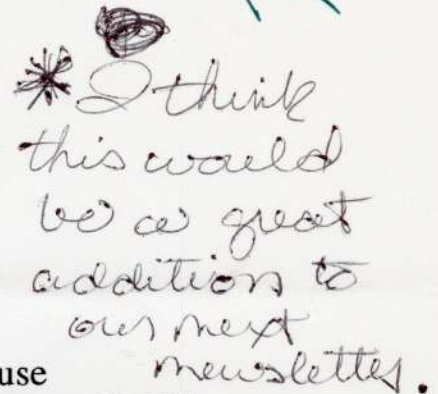 * I think
this would
be a great
addition to
our next
newsletter.
use